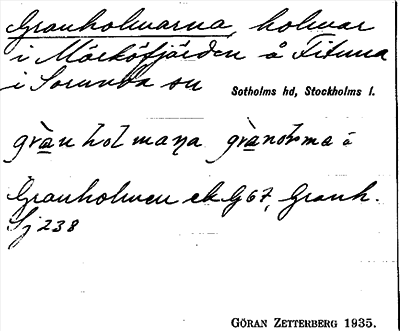 Granholmarna, holmar
i Mörköfjärden å Fituna
i Sorunda sn
Sotholms hd, Stockholms l.
Granholmen ek G67, Granh.
Sj 238
GÖRAN ZETTERBERG 1935.